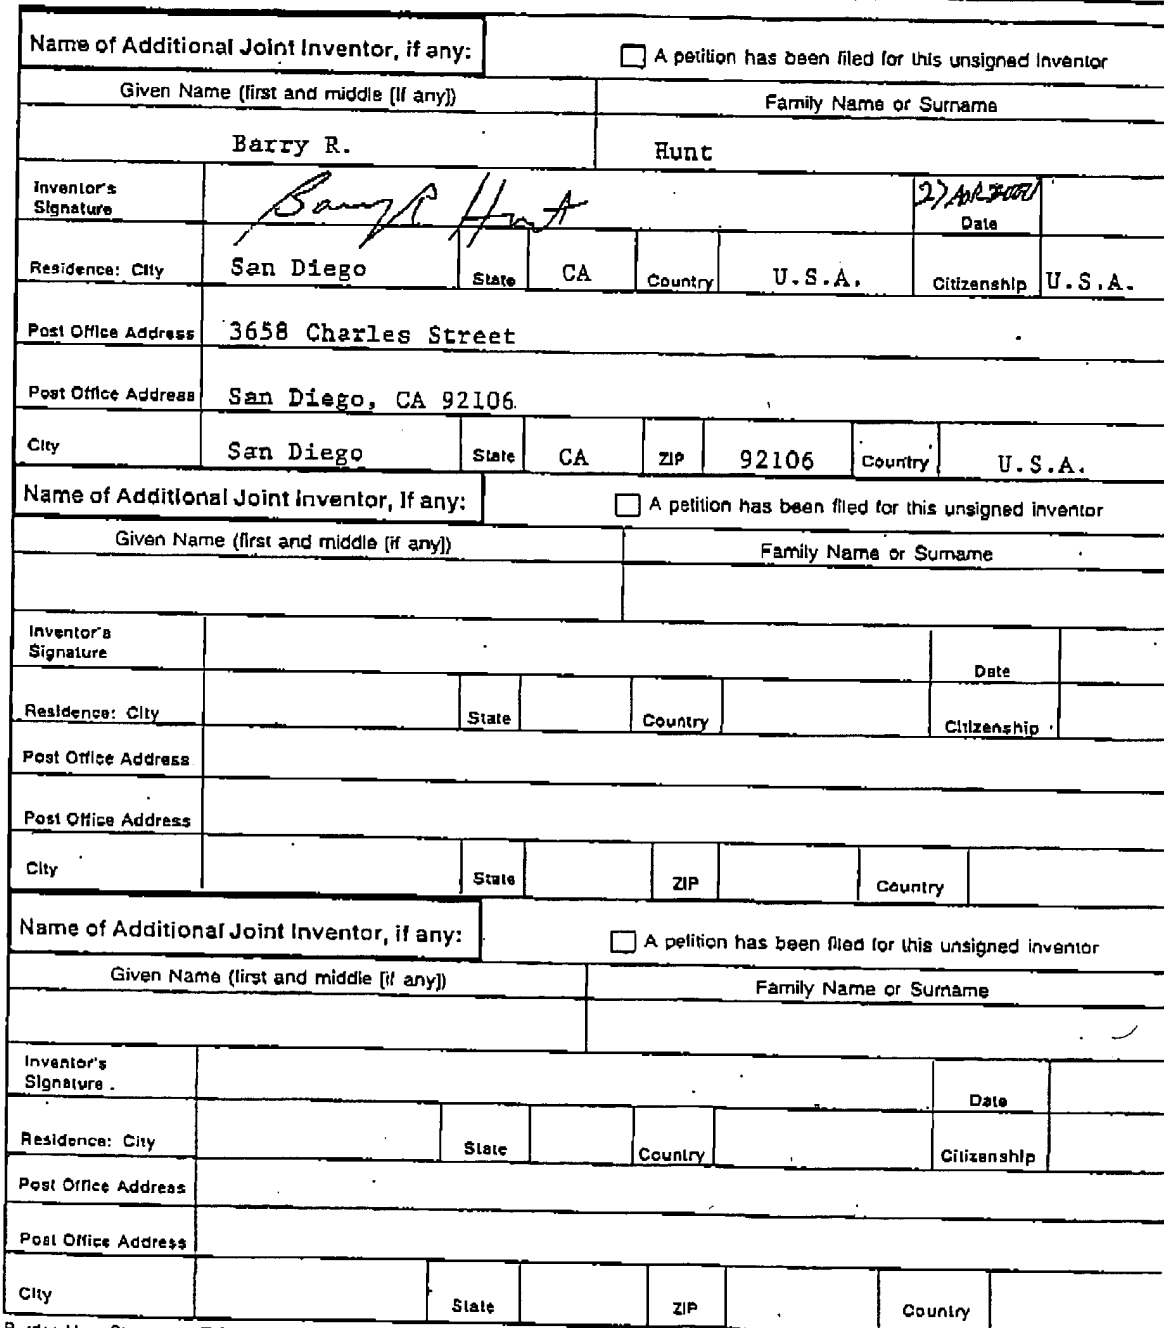 Name of Additional Joint Inventor, if any:
A petition has been filed for this unsigned inventor
Given Name (first and middle [if any])
Family Name or Surname
Barry R.
Hunt
Inventor's
Signature
Barry R Hunt
Date
Residence: City
San Diego
State
CA
Country
U.S.A.
Citizenship
U.S.A.
Post Office Address
3658 Charles Street
Post Office Address
San Diego, CA 92106
City
San Diego
State
CA
ZIP
92106
Country
U.S.A.
Name of Additional Joint Inventor, if any:
A petition has been filed for this unsigned inventor
Given Name (first and middle [if any])
Family Name or Surname
Inventor's
Signature
Date
Residence: City
State
Country
Citizenship
Post Office Address
Post Office Address
City
State
ZIP
Country
Name of Additional Joint Inventor, if any:
A petition has been filed for this unsigned inventor
Given Name (first and middle [if any])
Family Name or Surname
Inventor's
Signature
Date
Residence: City
State
Country
Citizenship
Post Office Address
Post Office Address
City
State
ZIP
Country